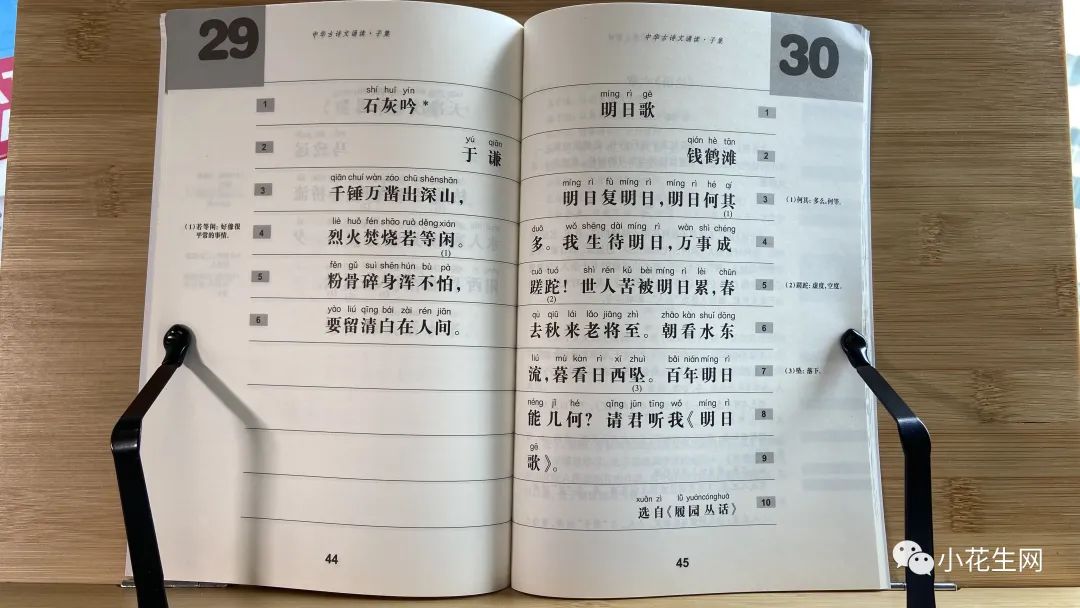 29
中华古诗文诵读·子集
shí huī yín
1 石灰吟*
yú qiān
2 于 谦
qiān chuí wàn záo chū shēn shān
3 千锤万凿出深山，
liè huǒ fén shāo ruò děng xián
4 烈火焚烧若等闲。
(1)
(1)若等闲：好像很
平常的事情。
fěn gǔ suì shēn hún bù pà
5 粉骨碎身浑不怕，
yào liú qīng bái zài rén jiān
6 要留清白在人间。
44
中华古诗文诵读·子集
30
míng rì gē
明日歌 1
qián hè tān
钱鹤滩 2
míng rì fù míng rì míng rì hé qí
明日复明日，明日何其 3
(1)
(1)何其：多么，何等。
duō wǒ shēng dài míng rì wàn shì chéng
多。我生待明日，万事成 4
cuō tuó shì rén kǔ bèi míng rì lèi chūn
蹉跎！世人苦被明日累，春 5
(2)
(2)蹉跎：虚度，空度。
qù qiū lái lǎo jiāng zhì zhāo kàn shuǐ dōng
去秋来老将至。朝看水东 6
liú mù kàn rì xī zhuì bǎi nián míng rì
流，暮看日西坠。百年明日 7
(3)
(3)坠：落下。
néng jǐ hé qǐng jūn tīng wǒ míng rì
能几何？请君听我《明日 8
gē
歌》。 9
xuǎn zì lǚ yuán cóng huà
选自《履园丛话》 10
45
小花生网